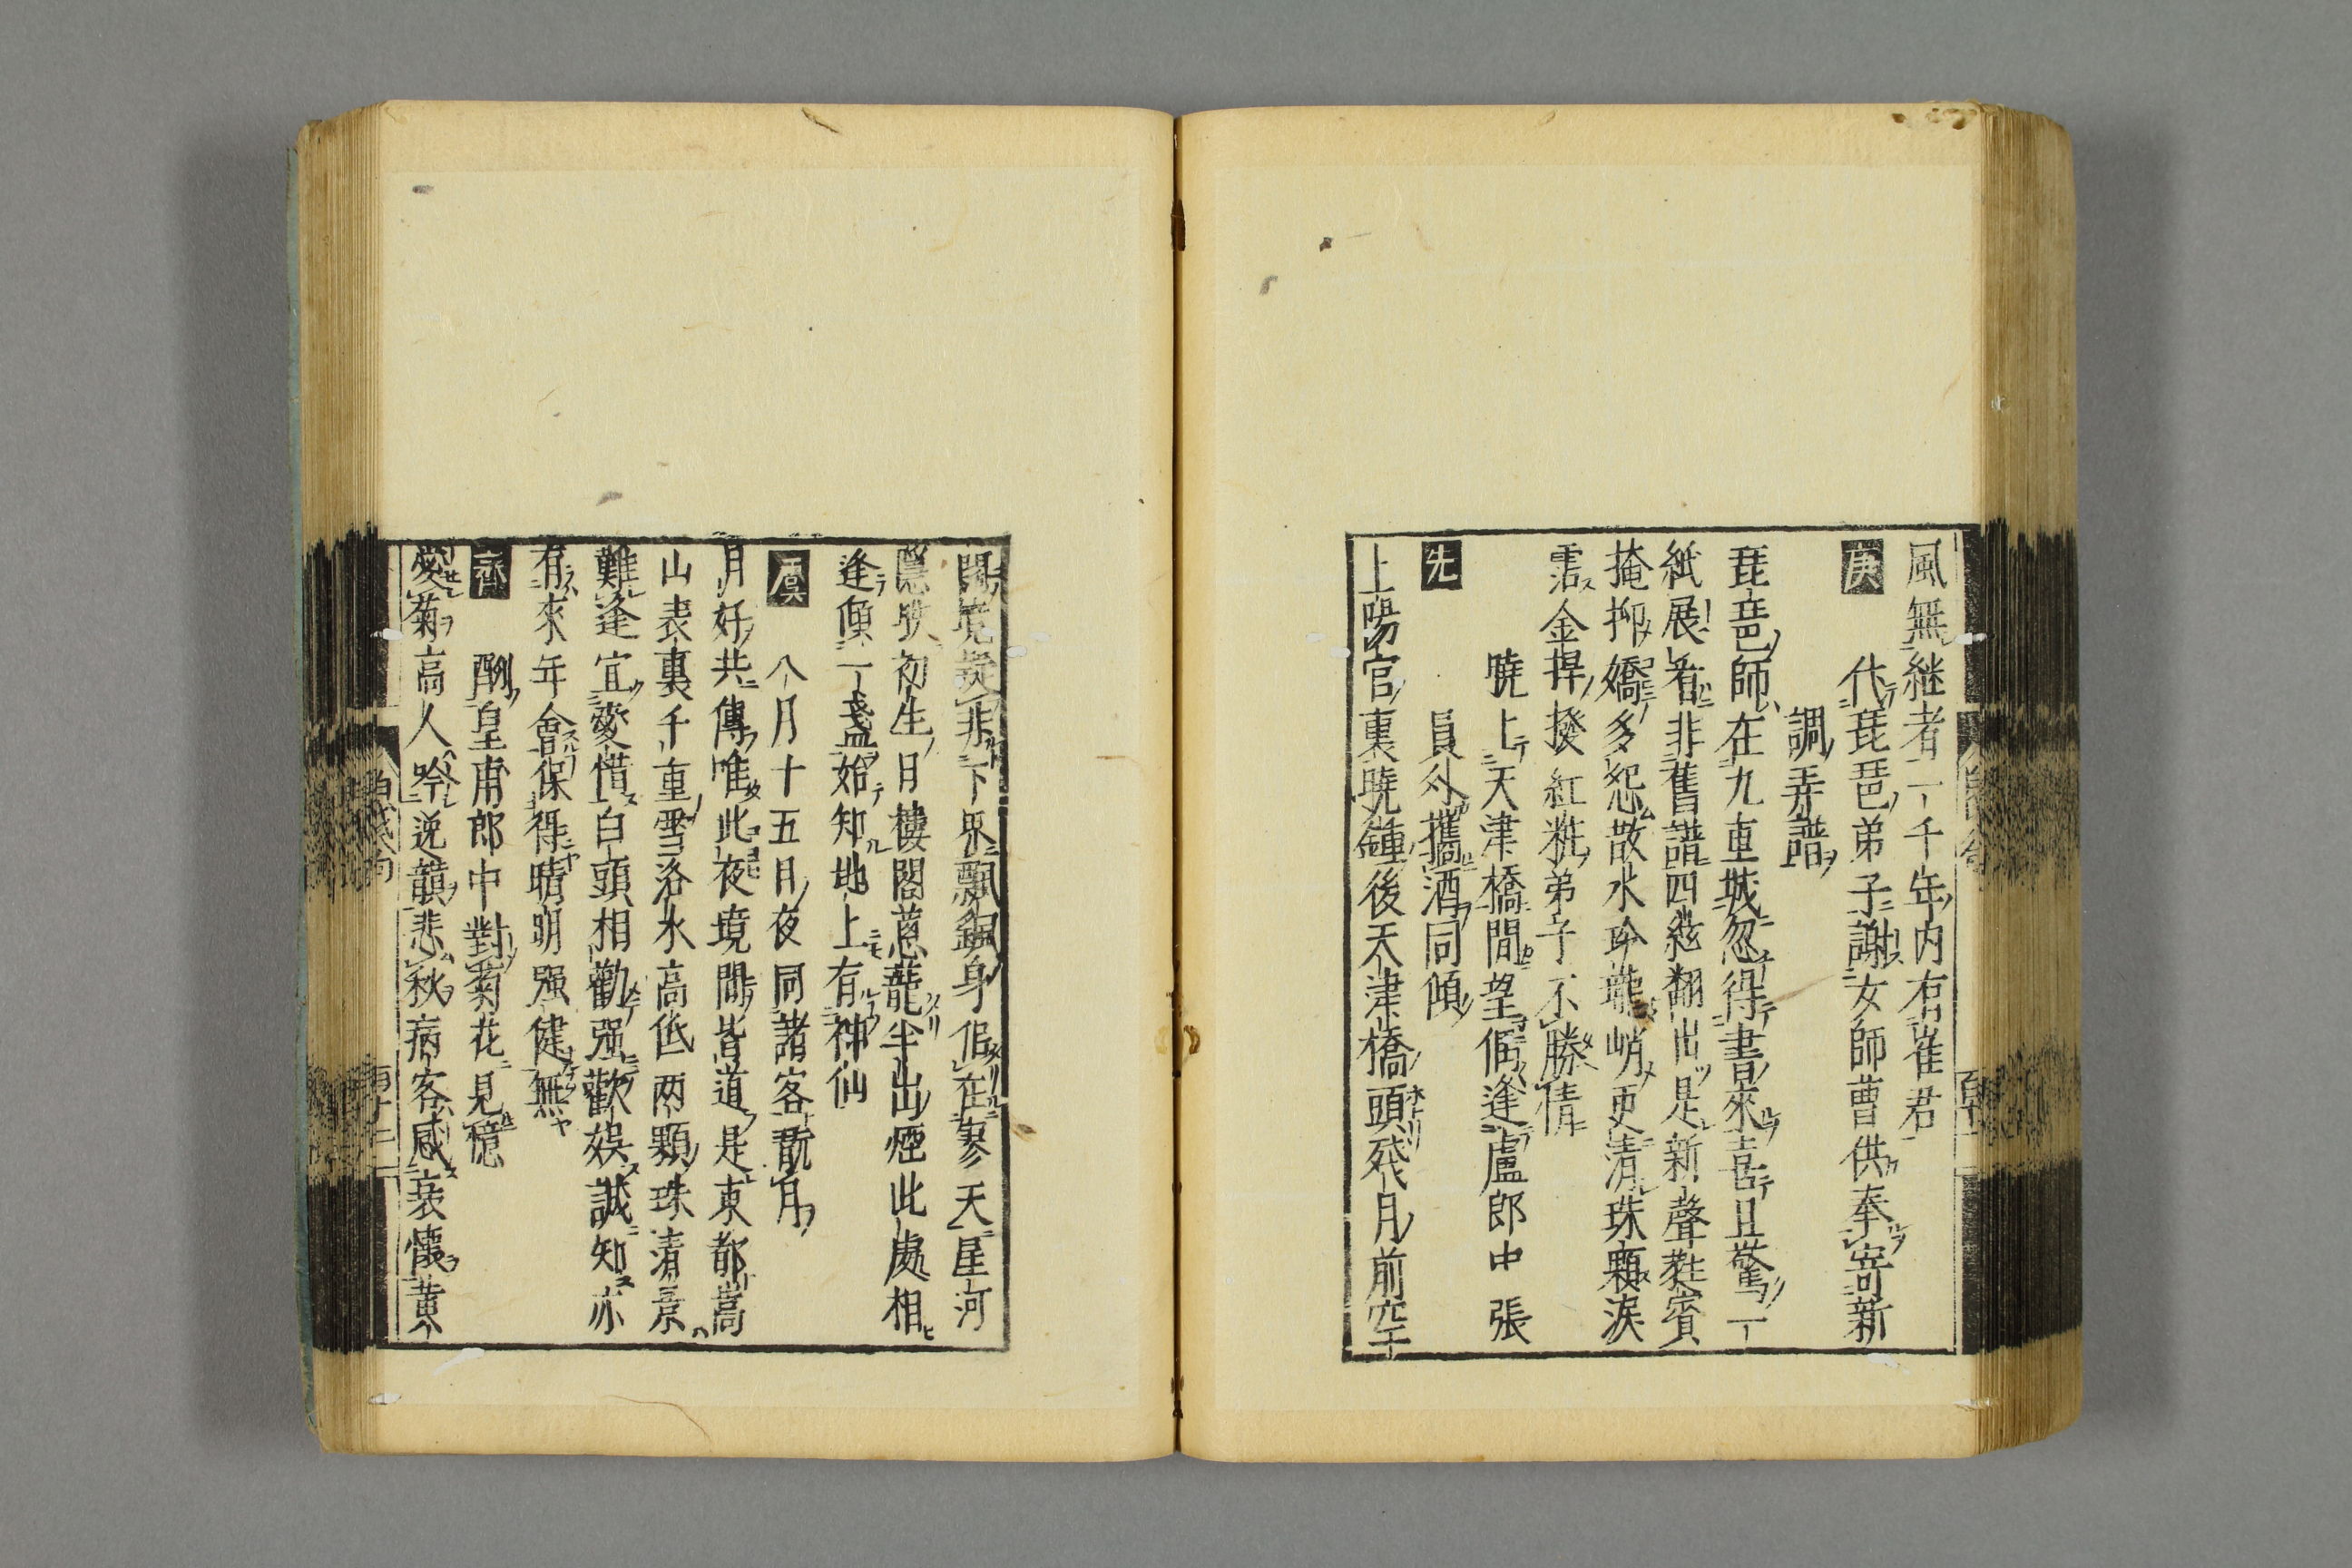 風無継者一千年内有崔君
庚　代琵琶弟子謝女師曹供奉寄新
調弄譜
琵琶師在九重城忽得書來喜且驚一
紙展看非舊譜四絃翻出是新聲蕤賓
掩抑嬌多怨散水玲瓏峭更清珠顆淚
霑金捍撥紅粧弟子不勝情
暁上天津橋閒望偶逢盧郎中張
先　員外攜酒同傾
上陽宮裏曉鐘後天津橋頭殘月前空
闊境疑非下界飄飖身似在寥天星河
隠映初生日樓閣葱蘢半出煙此處相
逢傾一盞始知地上有神仙
虞　八月十五日夜同諸客翫月
月好共傳唯此夜境閒皆道是東都嵩
山表裏千重雪洛水高低两顆珠清景
難逢宜愛惜白頭相勸强歡娯誠知亦
有來年會保得晴明强健無
齊　酬皇甫郎中對菊花見憶
愛菊高人吟逸韻悲秋病客感衰懐黄